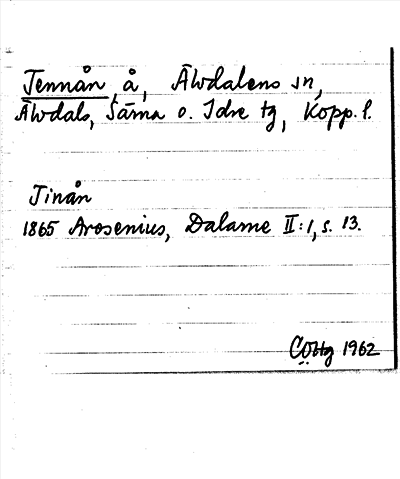 Jennån å, Älvdalens sn,
Älvdals, Särna o. Idre tg, Kopp. l.
Jinån
1865 Arosenius, Dalarne II:1, s. 13.
1962